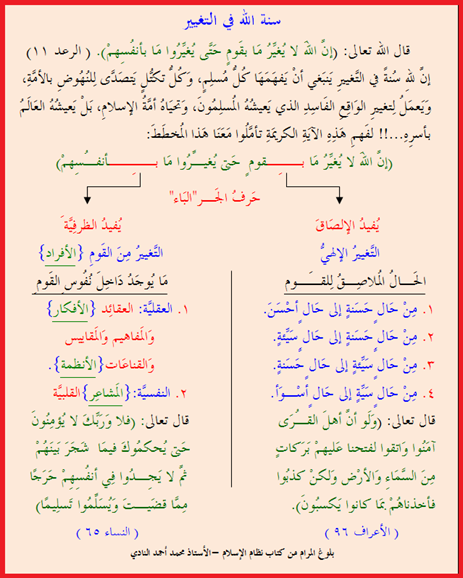 سنة الله في التغيير
قال الله تعالى: (إنَّ اللهَ لا يُغيِّرُ مَا بقَومٍ حَتَّى يُغيِّرُوا مَا بأنفُسِهِمْ). ( الرعد ١١ )
إنَّ للهِ سُنةً في التَّغييرِ يَنبَغي أنْ يَفهَمَهَا كُلُّ مُسلِمٍ، وَكُلُّ تكتُّلٍ يَتصَدَّى لِلنُهُوضِ بالأمَّةِ،
وَيَعمَلُ لِتغييرِ الوَاقِعِ الفَاسِدِ الذي يَعيشُهُ المسلِمُونَ، وَتحيَاهُ أمَّةُ الإسلامِ، بَلْ يَعيشُهُ العَالَمُ
بأسرِهِ...!! لفَهمِ هَذِهِ الآيَةِ الكريمَةِ تأمَّلُوا مَعَنَا هَذا المُخطَطَ:
(إنَّ اللهَ لا يُغيِّرُ مَا بـــــــــقومٍ حَتىَّ يُغيـِّـرُوا مَا بـــــــــأنفـــُسِهِمْ)
حَرفُ الجَــر"البَاء"
يُفيدُ الإلصَاقَ
التَّغييرُ الإلهيُّ
الحَــالُ المُلاصِــقُ للقـــَـوم
١. مِنْ حَالٍ حَسَنةٍ إلى حَالٍ أحْسَنَ.
٢. مِنْ حَالٍ حَسَنةٍ إلى حَالٍ سَيِّئةٍ.
٣. مِنْ حَالٍ سَيِّئةٍ إلى حَالٍ حَسَنةٍ.
٤. مِنْ حَالٍ سَيِّئةٍ إلى حَالٍ أسْــوَأ.
قال تعالى: (وَلَو أنَّ أهلَ القــُـرَى
آمَنُوا وَاتقوا لفتحنا عَليهمْ بَرَكاتٍ
مِنَ السَّمَاءِ وَالأرْضِ وَلكنْ كذبُوا
فأخذناهُمْ بمَا كانوا يَكسبُونَ).
( الأعراف ٩٦ )
يُفيدُ الظرفيَّةَ
التَّغييرُ مِنَ القَومِ {الأفرَاد}
مَا يُوجَدُ دَاخِلَ نُفُوسِ القَومِ
١. العقليَّة: العقائِد {الأفكَار}
وَالمفاهيم وَالمقاييس
وَالقناعَات {الأنظمَة}.
٢. النفسيَّة: {المَشاعِر} القلبيَّة
قال تعالى: (فلا وَرَبِّكَ لا يُؤمِنُونَ
حَتىَّ يُحكمُوكَ فيمَا شَجَرَ بَينَهُمْ
ثمَّ لا يَجــِــدُوا فِي أنفُسِهمْ حَرَجًا
مِمَّا قضــَيتَ وَيُسَلِّمُوا تَسليمًا)
( النساء ٦٥ )
بلوغ المرام من كتاب نظام الإسلام –الأستاذ محمد أحمد النادي